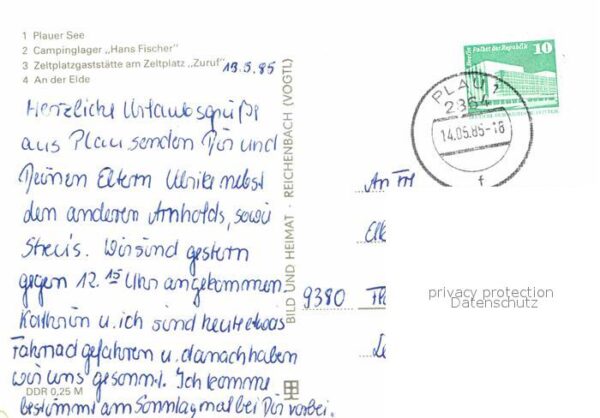 1 Plauer See
2 Campinglager „Hans Fischer"
3 Zeltplatzgaststätte am Zeltplatz „Zuruf"
4 An der Elde
13.5.85
Herzliche Urlaubsgrüße
aus Plau senden Dir und
Deinen Eltern Ulrike nebst
den anderen Arnholds, sowie
Wir sind gestern
gegen 12.15 Uhr angekommen.
Kathrin u. ich sind heute etwas
Fahrrad gefahren u. danach haben
wir uns gesonnt. Ich komme
bestimmt am Sonntag mal bei Dir vorbei.
DDR 0,25 M
BILD UND HEIMAT · REICHENBACH (VOGTL)
Berlin Palast der Republik
10
PLAU
2864
14.05.85-18
f
An
9380
privacy protection
Datenschutz